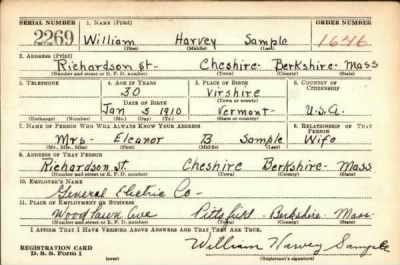 SERIAL NUMBER 1. NAME (Print) ORDER NUMBER
2269 William Harvey Sample 1646
(First) (Middle) (Last)
2. ADDRESS (Print)
Richardson St- Cheshire- Berkshire- Mass
(Number and street or R. F. D. number) (Town) (County) (State)
3. TELEPHONE 4. AGE IN YEARS 5. PLACE OF BIRTH 6. COUNTRY OF CITIZENSHIP
30 Virshire
DATE OF BIRTH (Town or county)
Jan 5 1910 Vermont- U.S.A.
(Exchange) (Number) (Mo.) (Day) (Yr.) (State or country)
7. NAME OF PERSON WHO WILL ALWAYS KNOW YOUR ADDRESS 8. RELATIONSHIP OF THAT PERSON
Mrs- Eleanor B Sample Wife
(Mr., Mrs., Miss) (First) (Middle) (Last)
9. ADDRESS OF THAT PERSON
Richardson St. Cheshire Berkshire- Mass
(Number and street or R. F. D. number) (Town) (County) (State)
10. EMPLOYER'S NAME
General Electric Co-
11. PLACE OF EMPLOYMENT OR BUSINESS
Woodlawn Ave Pittsfield- Berkshire- Mass-
(Number and street or R. F. D. number) (Town) (County) (State)
I AFFIRM THAT I HAVE VERIFIED ABOVE ANSWERS AND THAT THEY ARE TRUE.
REGISTRATION CARD William Harvey Sample
D. S. S. Form 1 (Registrant's signature)